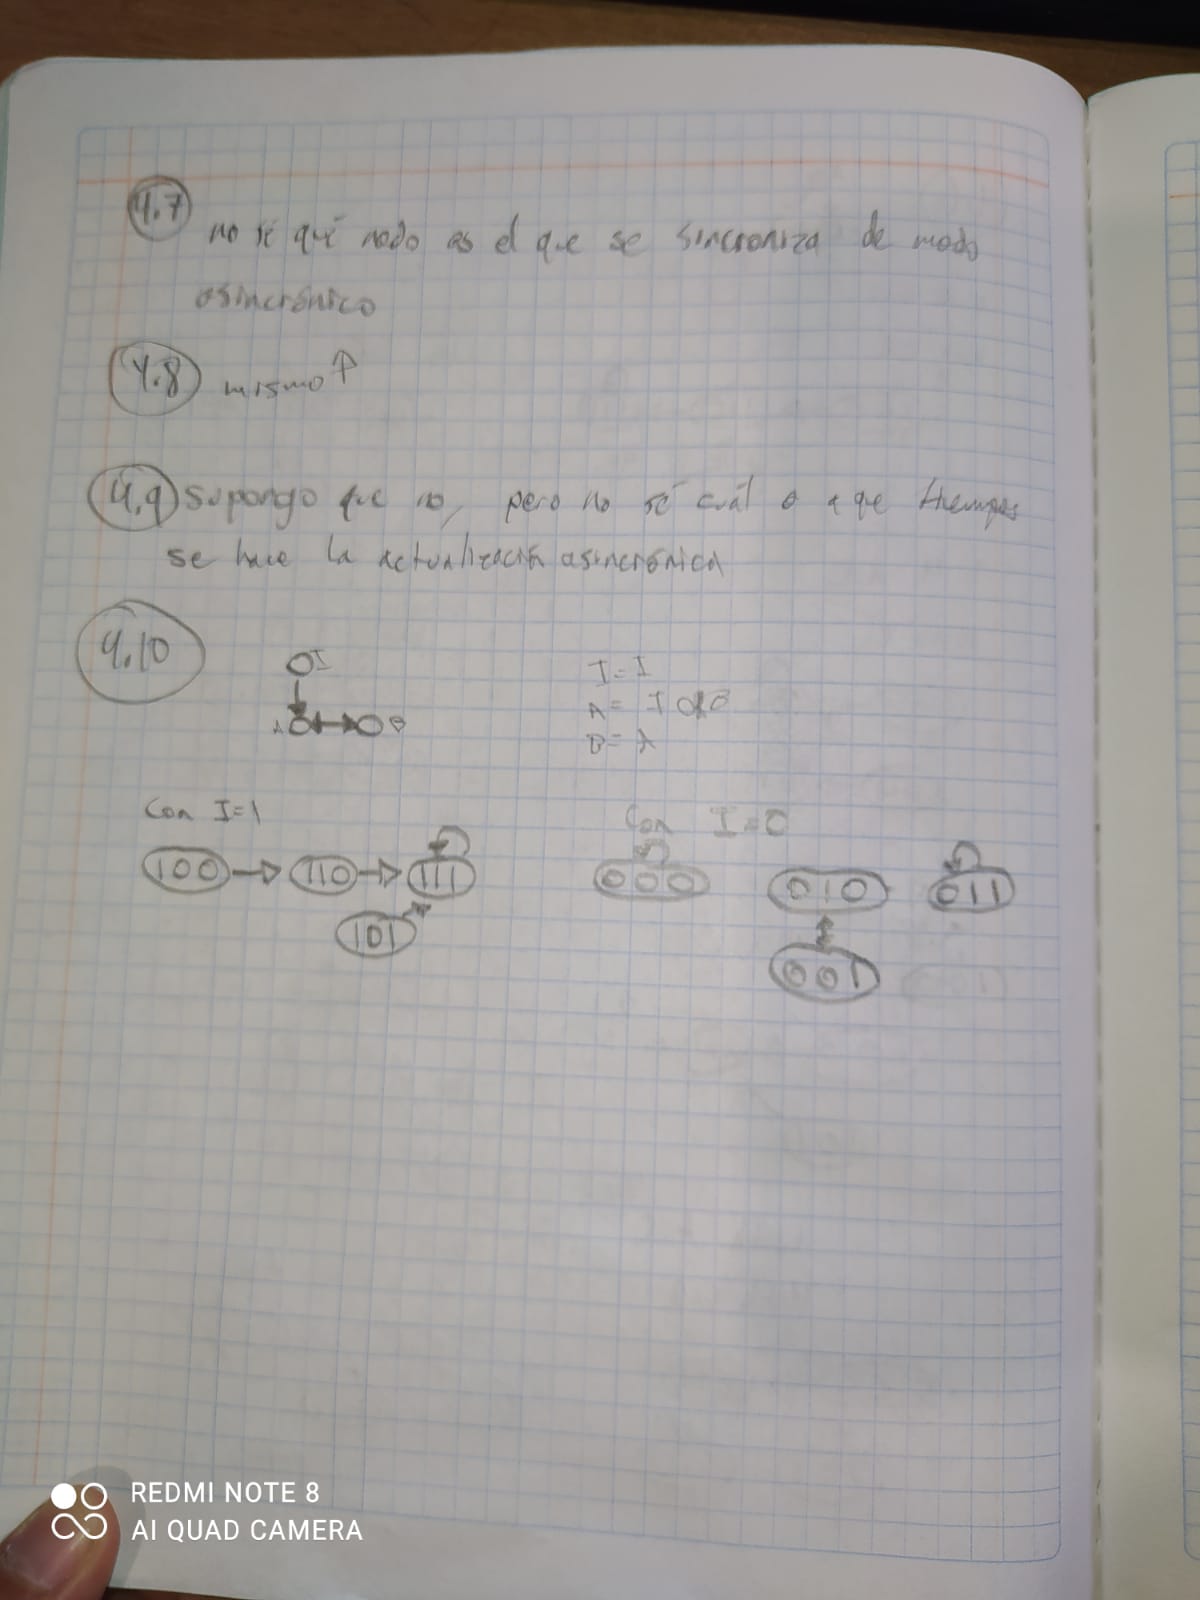 4.7
no sé qué nodo es el que se sincroniza de modo
asincrónico
4.8 mismo ↑
4.9 Supongo que no, pero no sé cuál o a que tiempos
se hace la actualización asincrónica
4.10
I
A B
I = I
A = I OR B
B = A
Con I=1
100 → 110 → 111
101
Con I=0
000 010 011
001
REDMI NOTE 8
AI QUAD CAMERA